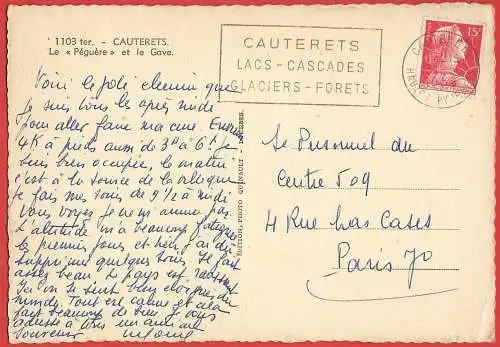 1103 ter. - CAUTERETS.
Le « Péguère » et le Gave.
Voici le joli chemin que
je suis tous les après midi
pour aller faire ma cure. Environ
4K à pieds aussi de 3h à 6h je
suis bien occupée, le matin
c'est à la source de la
je fais mes soins de 9 1/2 à midi
Vous voyez je ne m'amuse pas.
L'altitude m'a beaucoup fatiguée
les premiers jours et
supprimé quelques soins. Il fait
assez beau. Le pays est
Ici on se sent bien éloignée du
monde. Tout est calme et cela
fait beaucoup de bien. Je vous
adresse à tous un amical
souvenir
EDITION, PHOTO - LOURDES.
CAUTERETS
LACS - CASCADES
GLACIERS - FORETS
CAUTERETS
HAUTES PYRENEES
15F
Le Personnel du
Centre 509
4 Rue Las Cases
Paris 7º